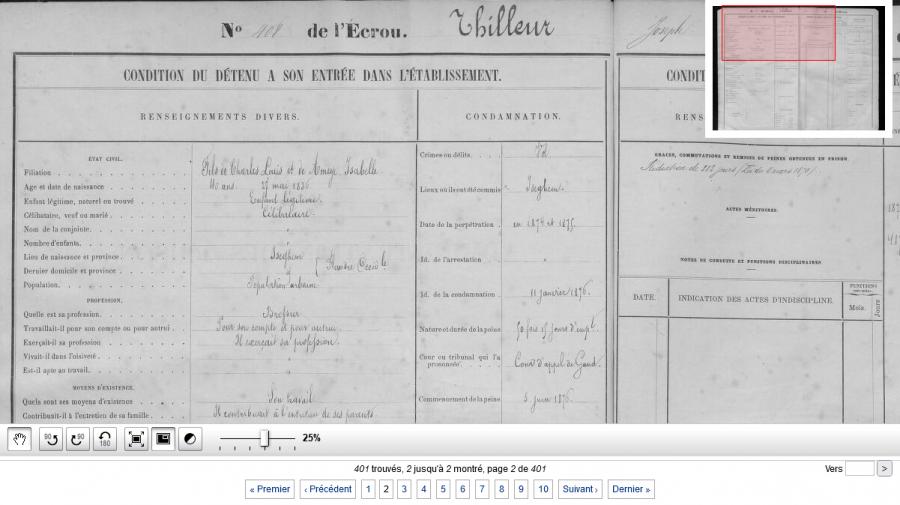 Nº 408 de l'Écrou. Thilleur Joseph
CONDITION DU DÉTENU A SON ENTRÉE DANS L'ÉTABLISSEMENT.
CONDIT
RENSEIGNEMENTS DIVERS.
CONDAMNATION.
RENS
ÉTAT CIVIL.
Filiation Fils de Charles Louis et de Isabelle
Age et date de naissance 40 ans. 27 mai 1836
Enfant légitime, naturel ou trouvé Enfant légitime.
Célibataire, veuf ou marié Célibataire.
Nom de la conjointe "
Nombre d'enfants "
Lieu de naissance et province Iseghem
Dernier domicile et province " Flandre Occid.le
Population Population urbaine
PROFESSION.
Quelle est sa profession Brossier
Travaillait-il pour son compte ou pour autrui Pour son compte et pour autrui.
Exerçait-il sa profession Il exerçait sa profession.
Vivait-il dans l'oisiveté "
Est-il apte au travail "
MOYENS D'EXISTENCE.
Quels sont ses moyens d'existence Son travail
Contribuait-il à l'entretien de sa famille Il contribuait à l'entretien de ses parents.
Crimes ou délits Vol
Lieux où ils ont été commis Iseghem.
Date de la perpétration en 1874 et 1875.
Id. de l'arrestation "
Id. de la condamnation 11 janvier 1876.
Nature et durée de la peine 50 fois 15 jours d'empt.
Cour ou tribunal qui l'a prononcée Cour d'appel de Gand.
Commencement de la peine 5 juin 1876.
GRACES, COMMUTATIONS ET REMISES DE PEINES OBTENUES EN PRISON.
Réduction de jours
ACTES MÉRITOIRES.
NOTES DE CONDUITE ET PUNITIONS DISCIPLINAIRES.
DATE.
INDICATION DES ACTES D'INDISCIPLINE.
PUNITIONS
Mois.
Jours
90
90
180
25%
401 trouvés, 2 jusqu'à 2 montré, page 2 de 401
Vers
>
« Premier
‹ Précédent
1 2 3 4 5 6 7 8 9 10
Suivant ›
Dernier »